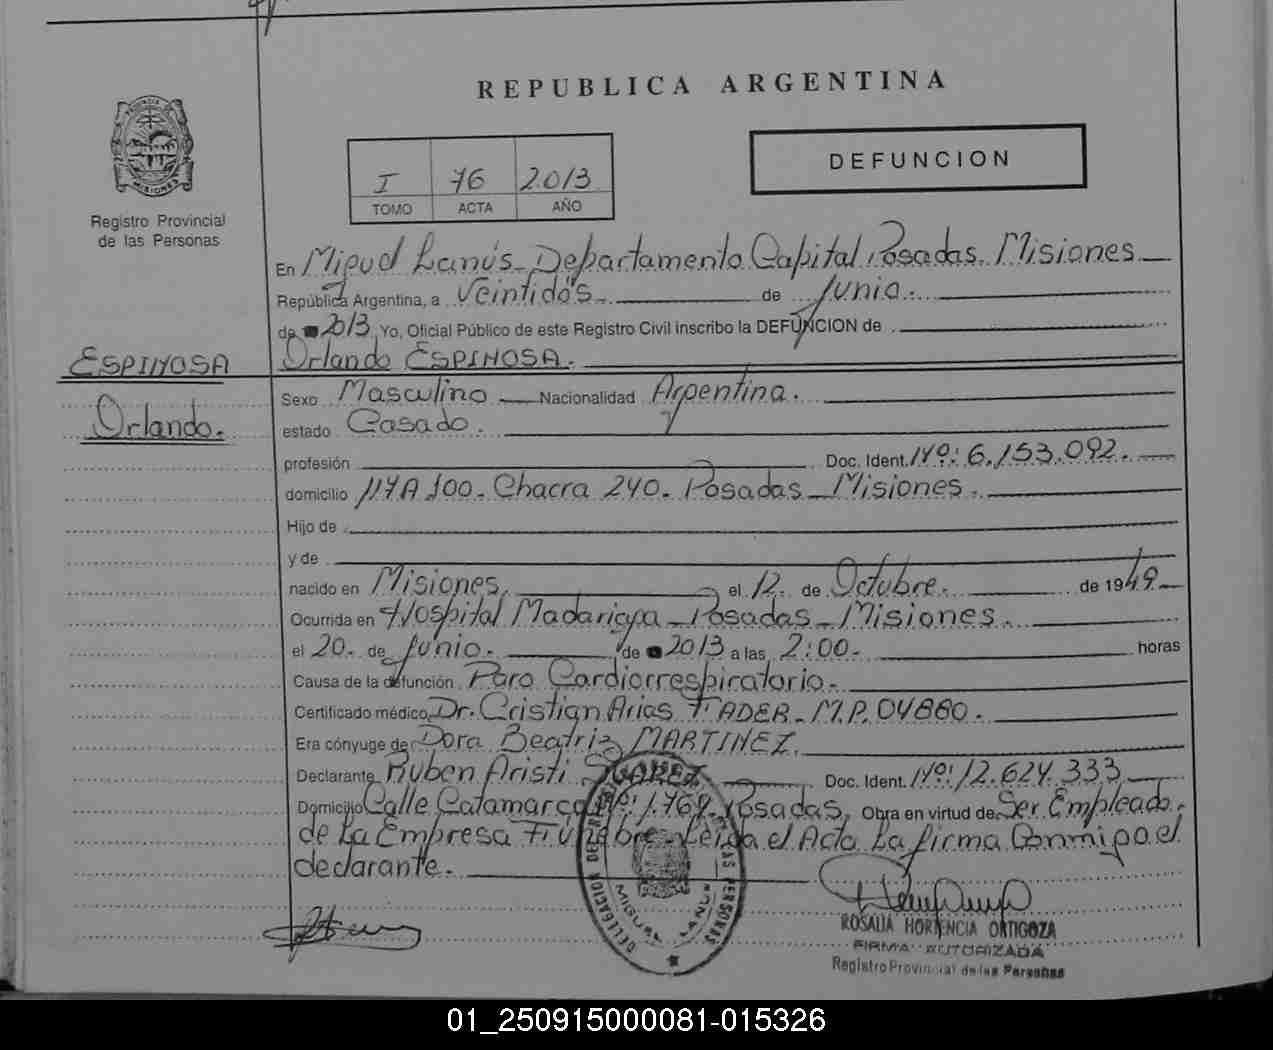 REPUBLICA ARGENTINA
PROVINCIA DE MISIONES
Registro Provincial
de las Personas
I 76 2013
TOMO ACTA AÑO
DEFUNCION
En Miguel Lanús - Departamento Capital, Posadas. Misiones
República Argentina, a Veintidós de Junio.
de 2013 Yo, Oficial Público de este Registro Civil inscribo la DEFUNCION de
ESPINOSA
Orlando.
Orlando ESPINOSA.
Sexo Masculino Nacionalidad Argentina.
estado Casado.
profesión Doc. Ident. Nº: 6.153.092.
domicilio 100. Chacra 240. Posadas - Misiones.
Hijo de
y de
nacido en Misiones. el 12. de Octubre. de 1949
Ocurrida en Hospital Madariaga - Posadas - Misiones.
el 20. de Junio. de 2013 a las 2:00. horas
Causa de la defunción Paro Cardiorrespiratorio.
Certificado médico Dr. Cristian Arias FADER - M.P. 04880.
Era cónyuge de Dora Beatriz MARTINEZ.
Declarante Ruben Aristi SUAREZ Doc. Ident. Nº: 12.624.333
Domicilio Calle Catamarca Nº: 1.764. Posadas, Obra en virtud de Ser Empleado.
de La Empresa Fúnebre. Leida el Acta La firma Conmigo el
declarante.
DELEGACION DEL REGISTRO DE LAS PERSONAS
MIGUEL LANUS
ROSALIA HORTENCIA ORTIGOZA
FIRMA AUTORIZADA
Registro Provincial de las Personas
01_250915000081-015326